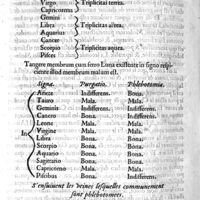 Virgo. Triplicitas terrea.
Capricornus
Gemini
Libra Triplicitas aërea.
Aquarius
Cancer
Scorpio Triplicitas aquea.
Pisces
Tangere membrum cum ferro Luna existente in signo respiciente illud membrum malum est.
Signa. Purgatio. Phlebotomia.
Aries Indifferens. Bona.
Tauro Mala. Mala.
Gemini Indifferens. Mala.
Cancro Bona. Indifferens.
Leone Mala. Mala.
Virgine Mala. Mala.
In Libra Bona. Bona.
Scorpio Bona. Bona.
Aquario Bona. Bona.
Sagitario Bona. Bona.
Capricorno Mala. Mala.
Piscibus Bona. Indifferens.
S'ensuivent les veines lesquelles communement
sont phlebotomées.